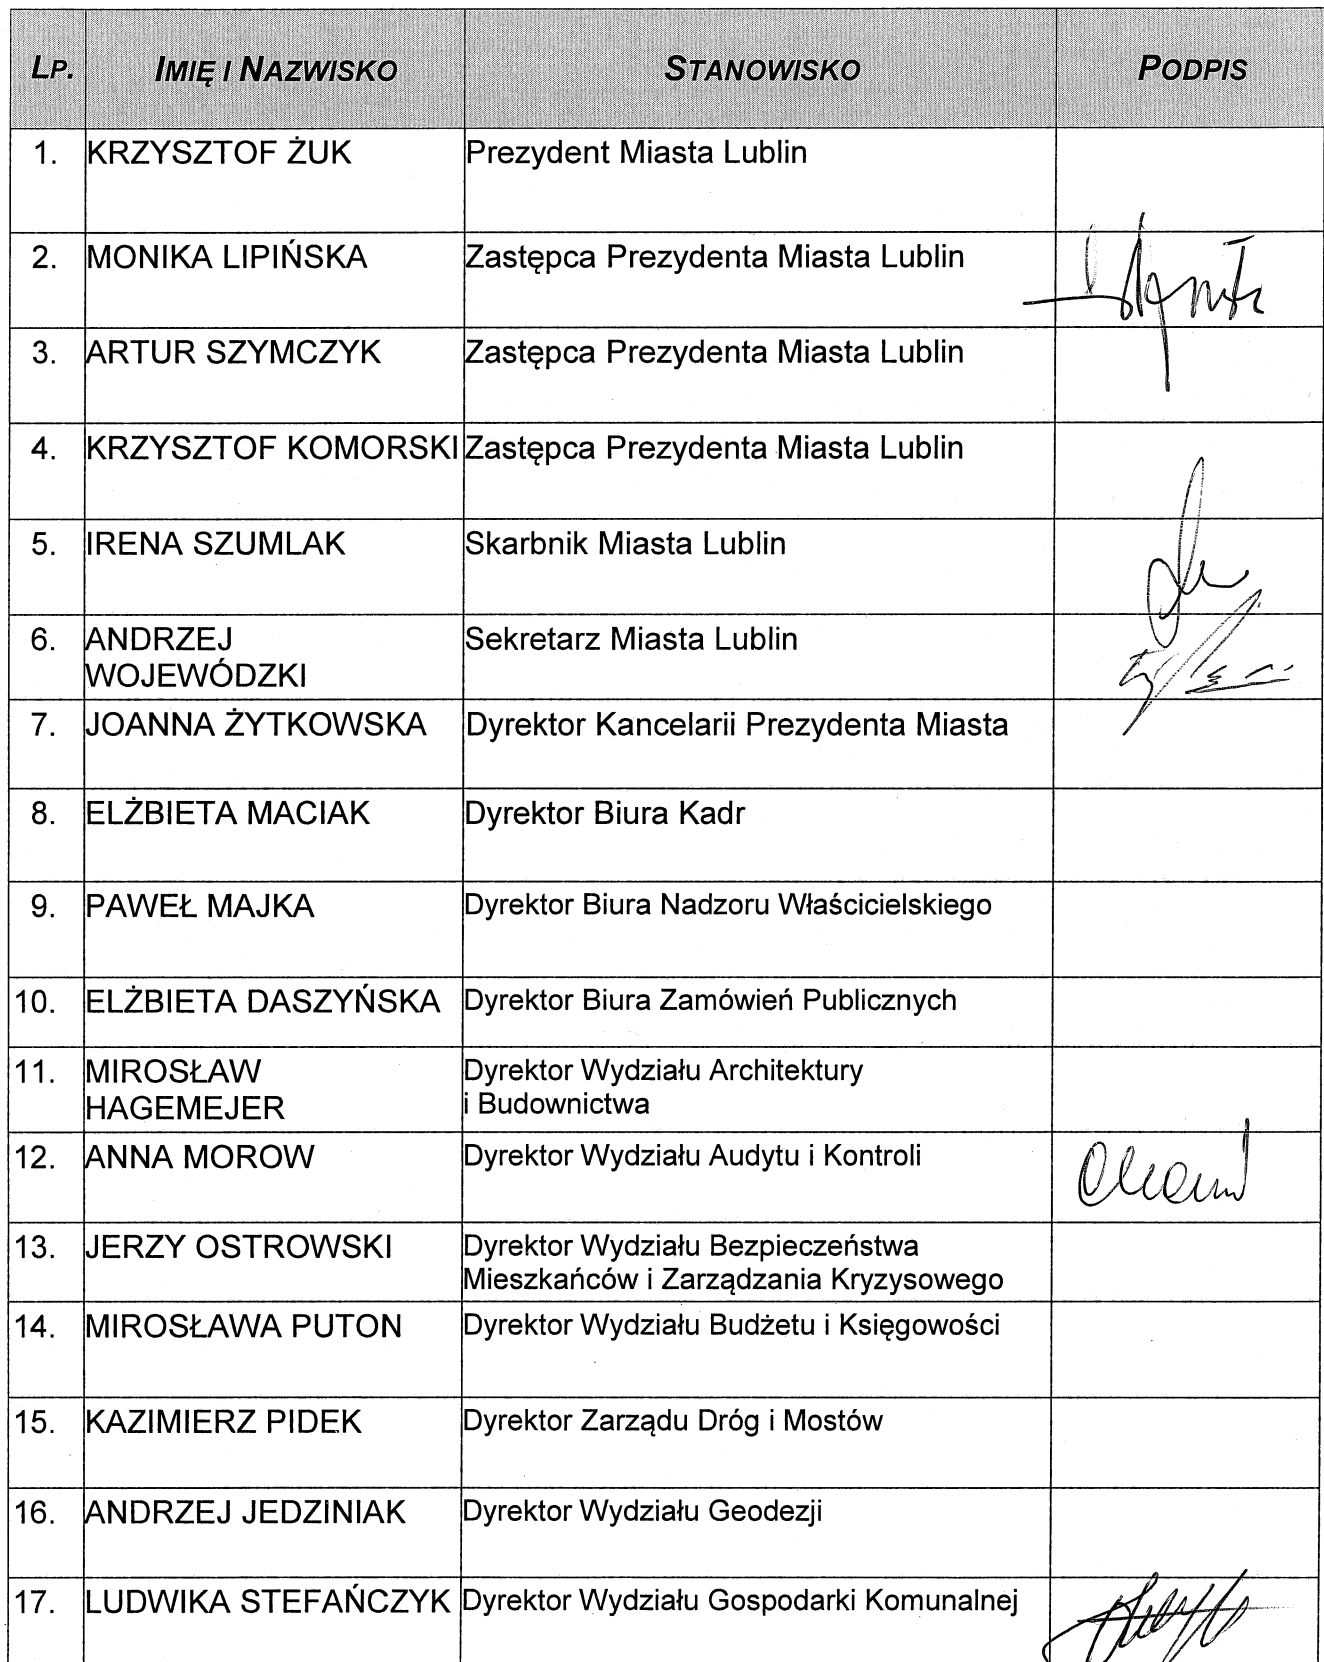 LP. IMIĘ I NAZWISKO STANOWISKO PODPIS
1. KRZYSZTOF ŻUK Prezydent Miasta Lublin
2. MONIKA LIPIŃSKA Zastępca Prezydenta Miasta Lublin
3. ARTUR SZYMCZYK Zastępca Prezydenta Miasta Lublin
4. KRZYSZTOF KOMORSKI Zastępca Prezydenta Miasta Lublin
5. IRENA SZUMLAK Skarbnik Miasta Lublin
6. ANDRZEJ Sekretarz Miasta Lublin
WOJEWÓDZKI
7. JOANNA ŻYTKOWSKA Dyrektor Kancelarii Prezydenta Miasta
8. ELŻBIETA MACIAK Dyrektor Biura Kadr
9. PAWEŁ MAJKA Dyrektor Biura Nadzoru Właścicielskiego
10. ELŻBIETA DASZYŃSKA Dyrektor Biura Zamówień Publicznych
11. MIROSŁAW Dyrektor Wydziału Architektury
HAGEMEJER i Budownictwa
12. ANNA MOROW Dyrektor Wydziału Audytu i Kontroli
13. JERZY OSTROWSKI Dyrektor Wydziału Bezpieczeństwa
Mieszkańców i Zarządzania Kryzysowego
14. MIROSŁAWA PUTON Dyrektor Wydziału Budżetu i Księgowości
15. KAZIMIERZ PIDEK Dyrektor Zarządu Dróg i Mostów
16. ANDRZEJ JEDZINIAK Dyrektor Wydziału Geodezji
17. LUDWIKA STEFAŃCZYK Dyrektor Wydziału Gospodarki Komunalnej